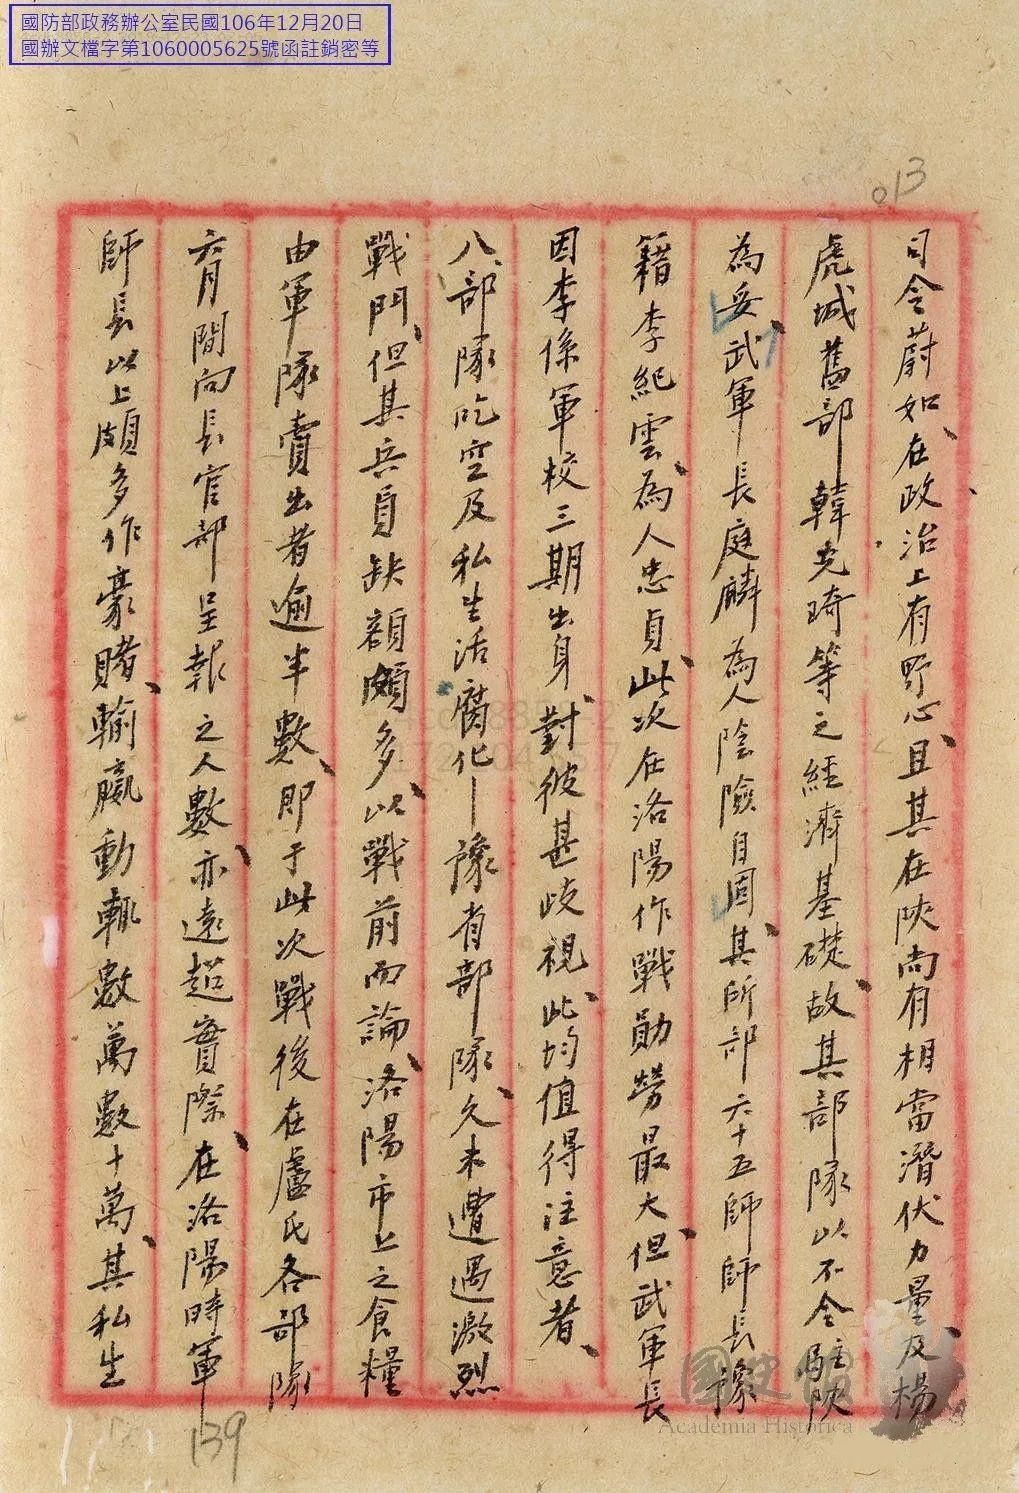 國防部政務辦公室民國106年12月20日
國辦文檔字第1060005625號函註銷密等
013
司令蔚如、在政治上有野心、且其在陝尚有相當潛伏力量、及楊
虎城舊部韓克琦等之經濟基礎、故其部隊以不令駐陝
為妥、武軍長庭麟為人陰險自固、其所部六十五師師長豫
籍李紀雲、為人忠貞、此次在洛陽作戰勛勞最大、但武軍長
因李係軍校三期出身、對彼甚歧視、此均值得注意者、
八、部隊吃空及私生活腐化—豫省部隊、久未遭遇激烈
戰鬥、但其兵員缺額頗多、以戰前而論、洛陽市上之食糧
由軍隊賣出者逾半數、即于此次戰後在盧氏各部隊
六月間向長官部呈報之人數、亦遠超實際、在洛陽時軍
師長以上頗多作豪賭、輸贏動輒數萬數十萬、其私生
139
國史館
Academia Historica